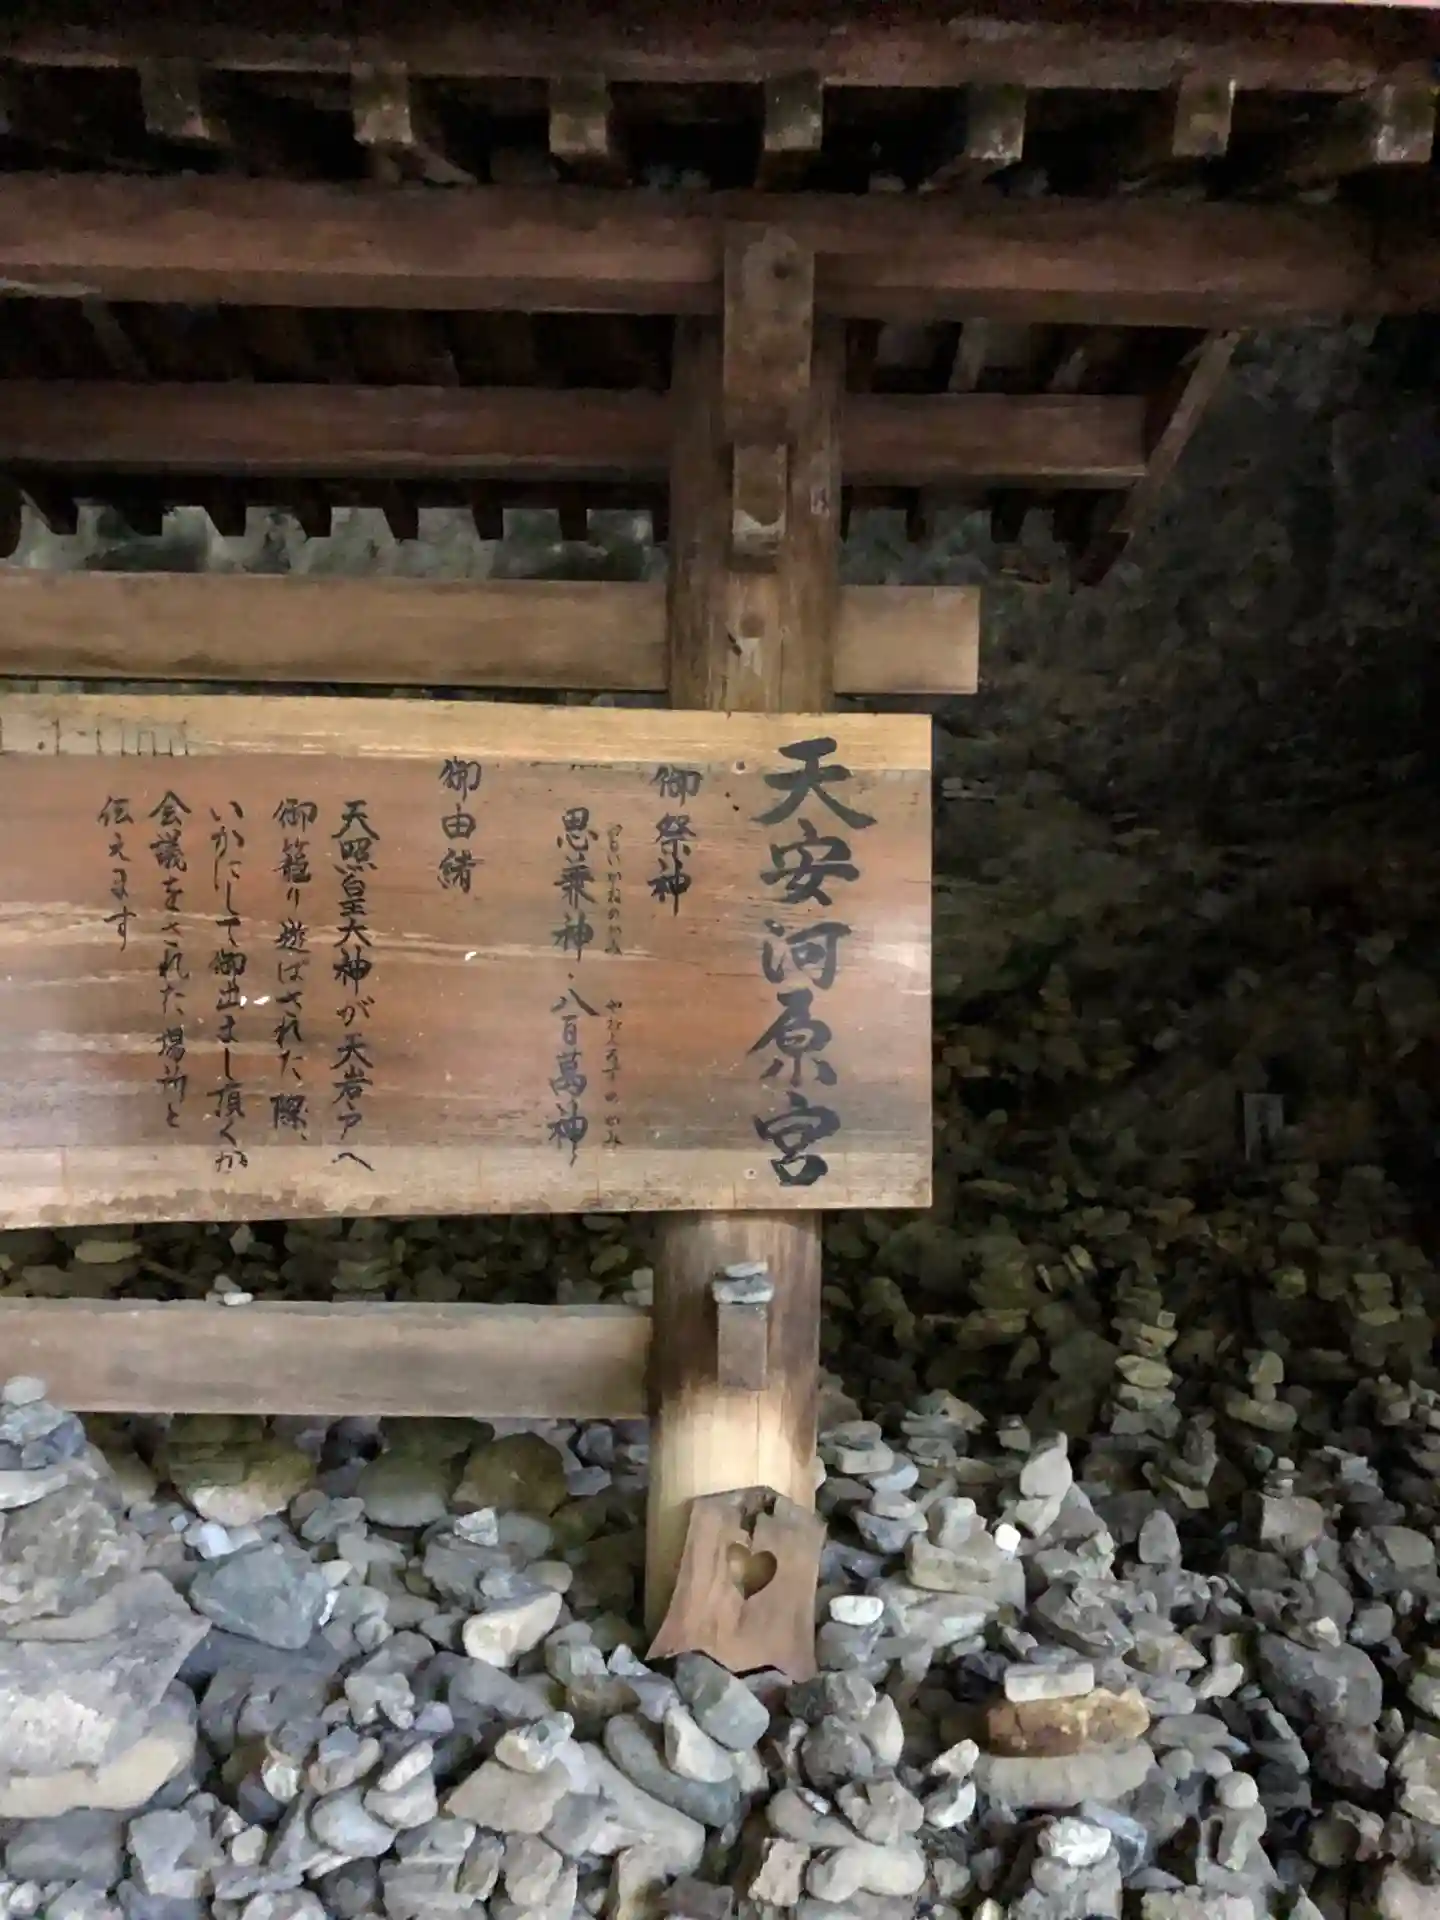 天安河原宮
御祭神
思兼神・八百萬神
おもいかねのかみ
やおよろずのかみ
御由緒
天照皇大神が天岩戸へ
御籠り遊ばされた際、
いかにして御出まし頂くか
会議をされた場所と
伝えます